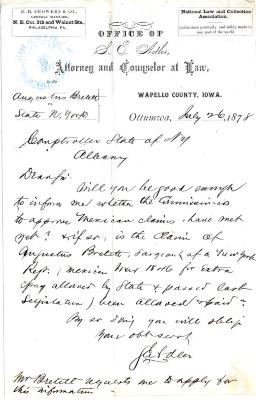 D. H. SHOWERS & CO.
GENERAL MANAGERS,
N. E. Cor. 5th and Walnut Sts.
PHILADELPHIA, PA.
National Law and Collection
Association.
Collections promptly and safely made in
any part of the world.
OFFICE OF
S. E. Adler,
Attorney and Counselor at Law,
WAPELLO COUNTY, IOWA.
Augustus Bretett
vs
State N. York
Ottumwa, July 26, 1878
Comptroller State of NY
Albany
Dear Sir
Will you be good enough
to inform me whether the Commissioners
to approve Mexican claims have met
yet? & if so, is the claim of
Augustus Bretett, Sargeant of a New York
Regt., Mexican War 1846 for extra
pay allowed by State & passed last
Legislature) been allowed & paid?
By so doing you will oblige
Your obt servt
S E Adler
Mr Bretett requests me to apply for
this information